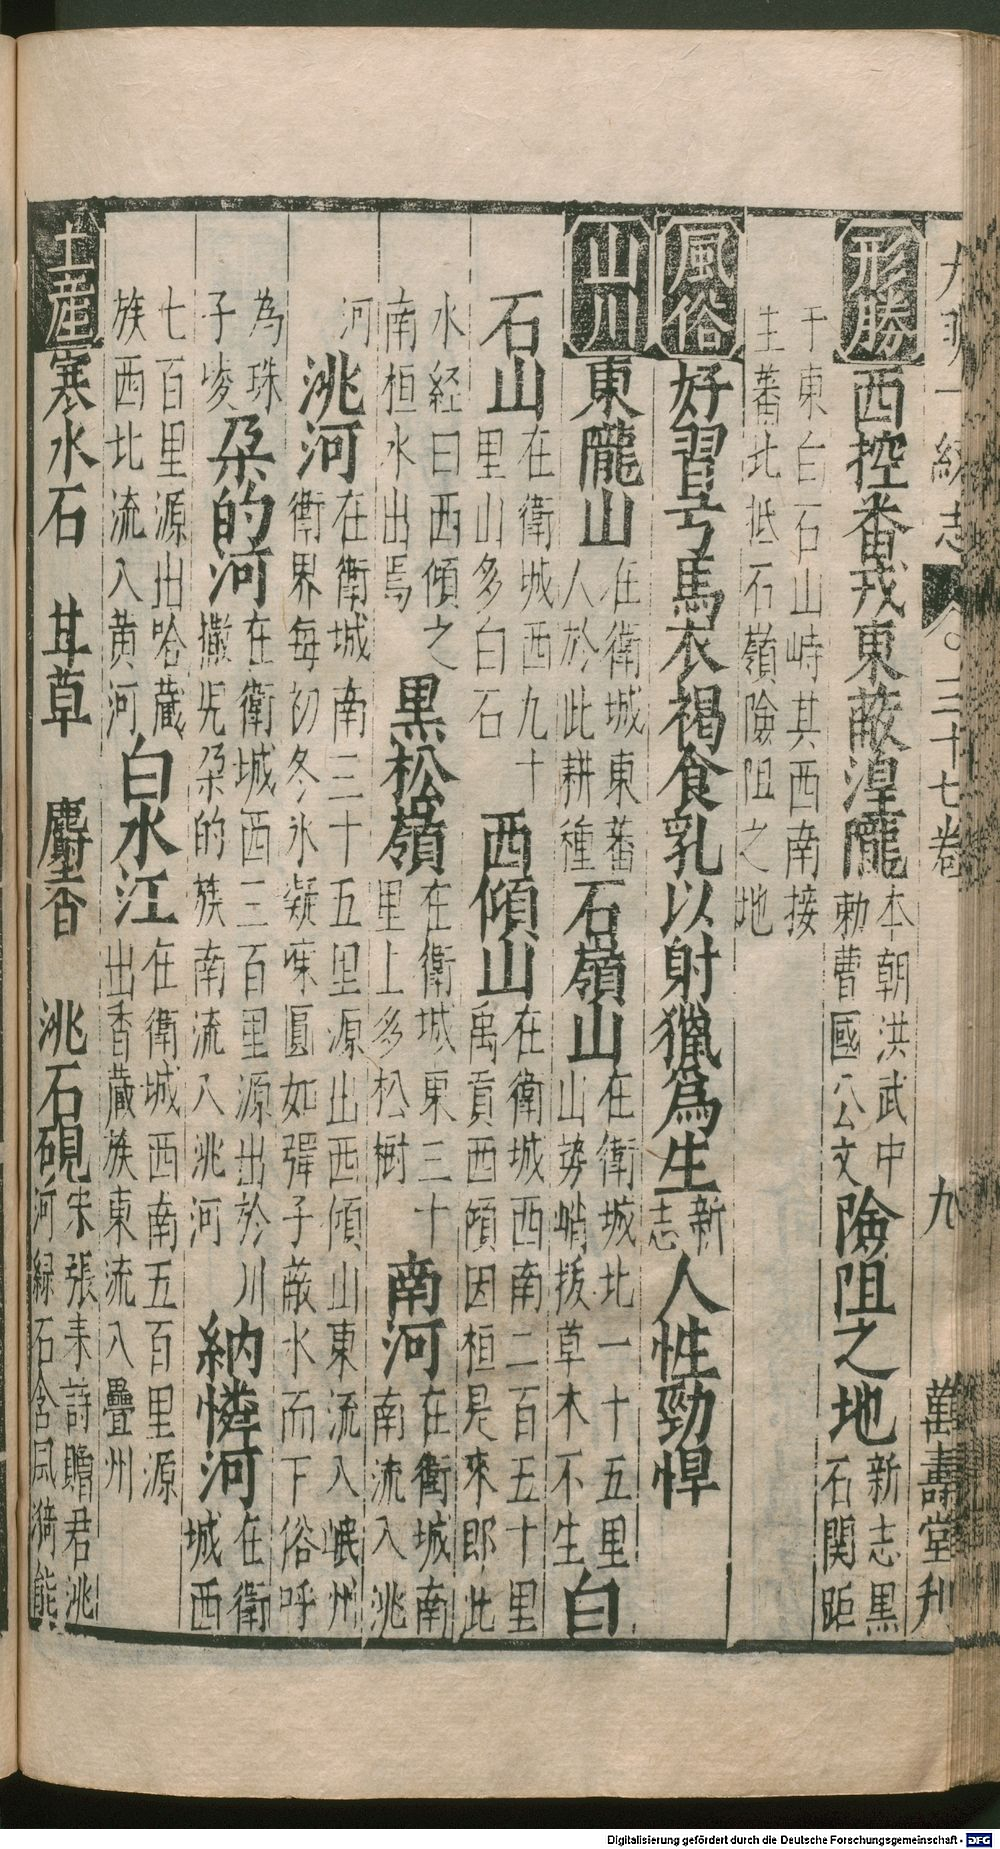 大明一統志 三十七卷 九 萬壽堂刋
形勝 西控番戎東蔽湟隴 本朝洪武中勅曹國公文 險阻之地 新志黒石関距
于東白石山峙其西南接生蕃北抵石嶺險阻之地
風俗 好習弓馬衣褐食乳以射獵為生 新志 人性勁悍
山川 東隴山 在衛城東蕃人於此耕種 石嶺山 在衛城北一十五里山勢峭拔草木不生 白
石山 在衛城西九十里山多白石 西傾山 在衛城西南二百五十里禹貢西傾因桓是來郎此
水経曰西傾之南桓水出焉 黒松嶺 在衛城東三十里上多松樹 南河 在衛城南南流入洮
河 洮河 在衛城南三十五里源出西傾山東流入岷州衛界每初冬氷凝㾪圓如彈子蔽水而下俗呼
為珠子崚 朶的河 在衛城西三百里源出於川撒兂朶的簇南流入洮河 納憐河 在衛城西
七百里源出哈藏族西北流入黄河 白水江 在衛城西南五百里源出香藏族東流入疊州
土產 寒水石 甘草 麝香 洮石硯 宋張耒詩贈君洮河緑石含風漪能
Digitalisierung gefördert durch die Deutsche Forschungsgemeinschaft - DFG